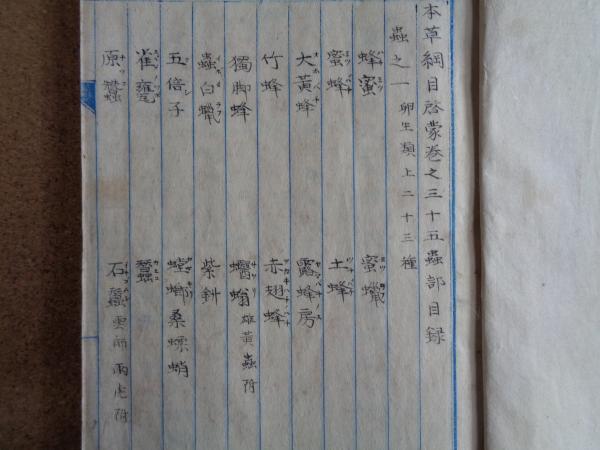 本草綱目啓蒙巻之三十五蟲部目録
蟲之一 卵生類上二十三種
蜂蜜 蜜蠟
蜜蜂 土蜂
大黃蜂 露蜂房
竹蜂 赤翅蜂
獨脚蜂 蠮螉 雄黃蟲附
蟲白蠟 紫釤
五倍子 螳螂桑螵蛸
雀甕 蠶
原蠶 石蠶 雲師 雨虎附